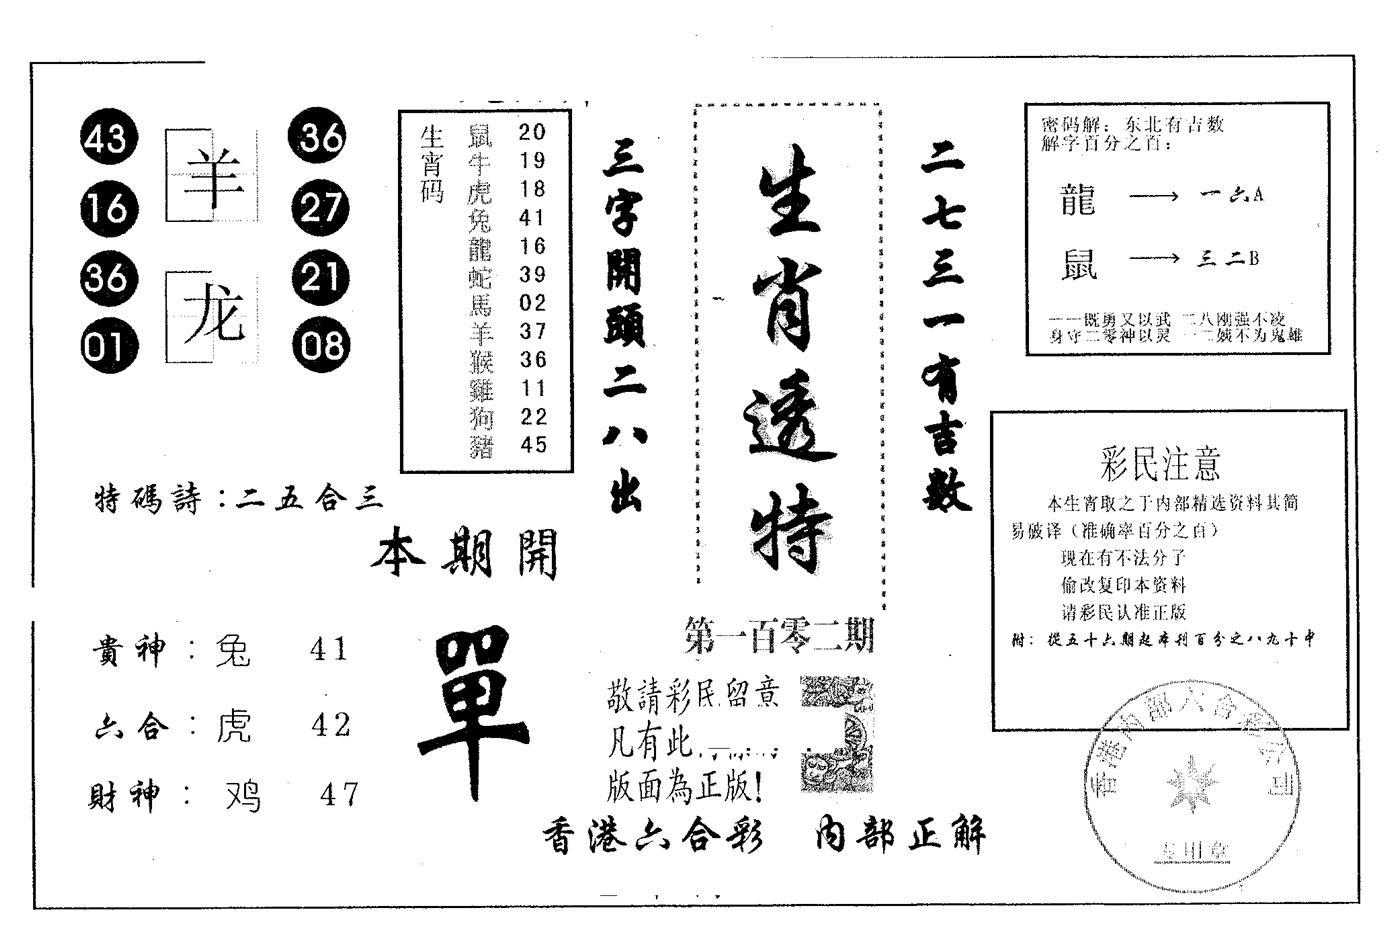 43
16
36
01
羊
龙
36
27
21
08
特碼詩：二五合三
本期開
單
貴神：兔 41
六合：虎 42
財神：鸡 47
生宵码
鼠 20
牛 19
虎 18
兔 41
龍 16
蛇 39
馬 02
羊 37
猴 36
雞 11
狗 22
豬 45
三字開頭二八出
生肖透特
第一百零二期
敬請彩民留意
凡有此
版面為正版！
香港六合彩 内部正解
二七三一有吉数
密码解：东北有吉数
解字百分之百：
龍 → 一六A
鼠 → 三二B
一一既勇又以武 二八刚强不凌
身守二零神以灵 一二嫉不为鬼雄
彩民注意
本生宵取之于内部精选资料其简
易破译（准确率百分之百）
现在有不法分子
偷改复印本资料
请彩民认准正版
附：從五十六期起本刊百分之八九十中
香港内部六合彩公司
专用章